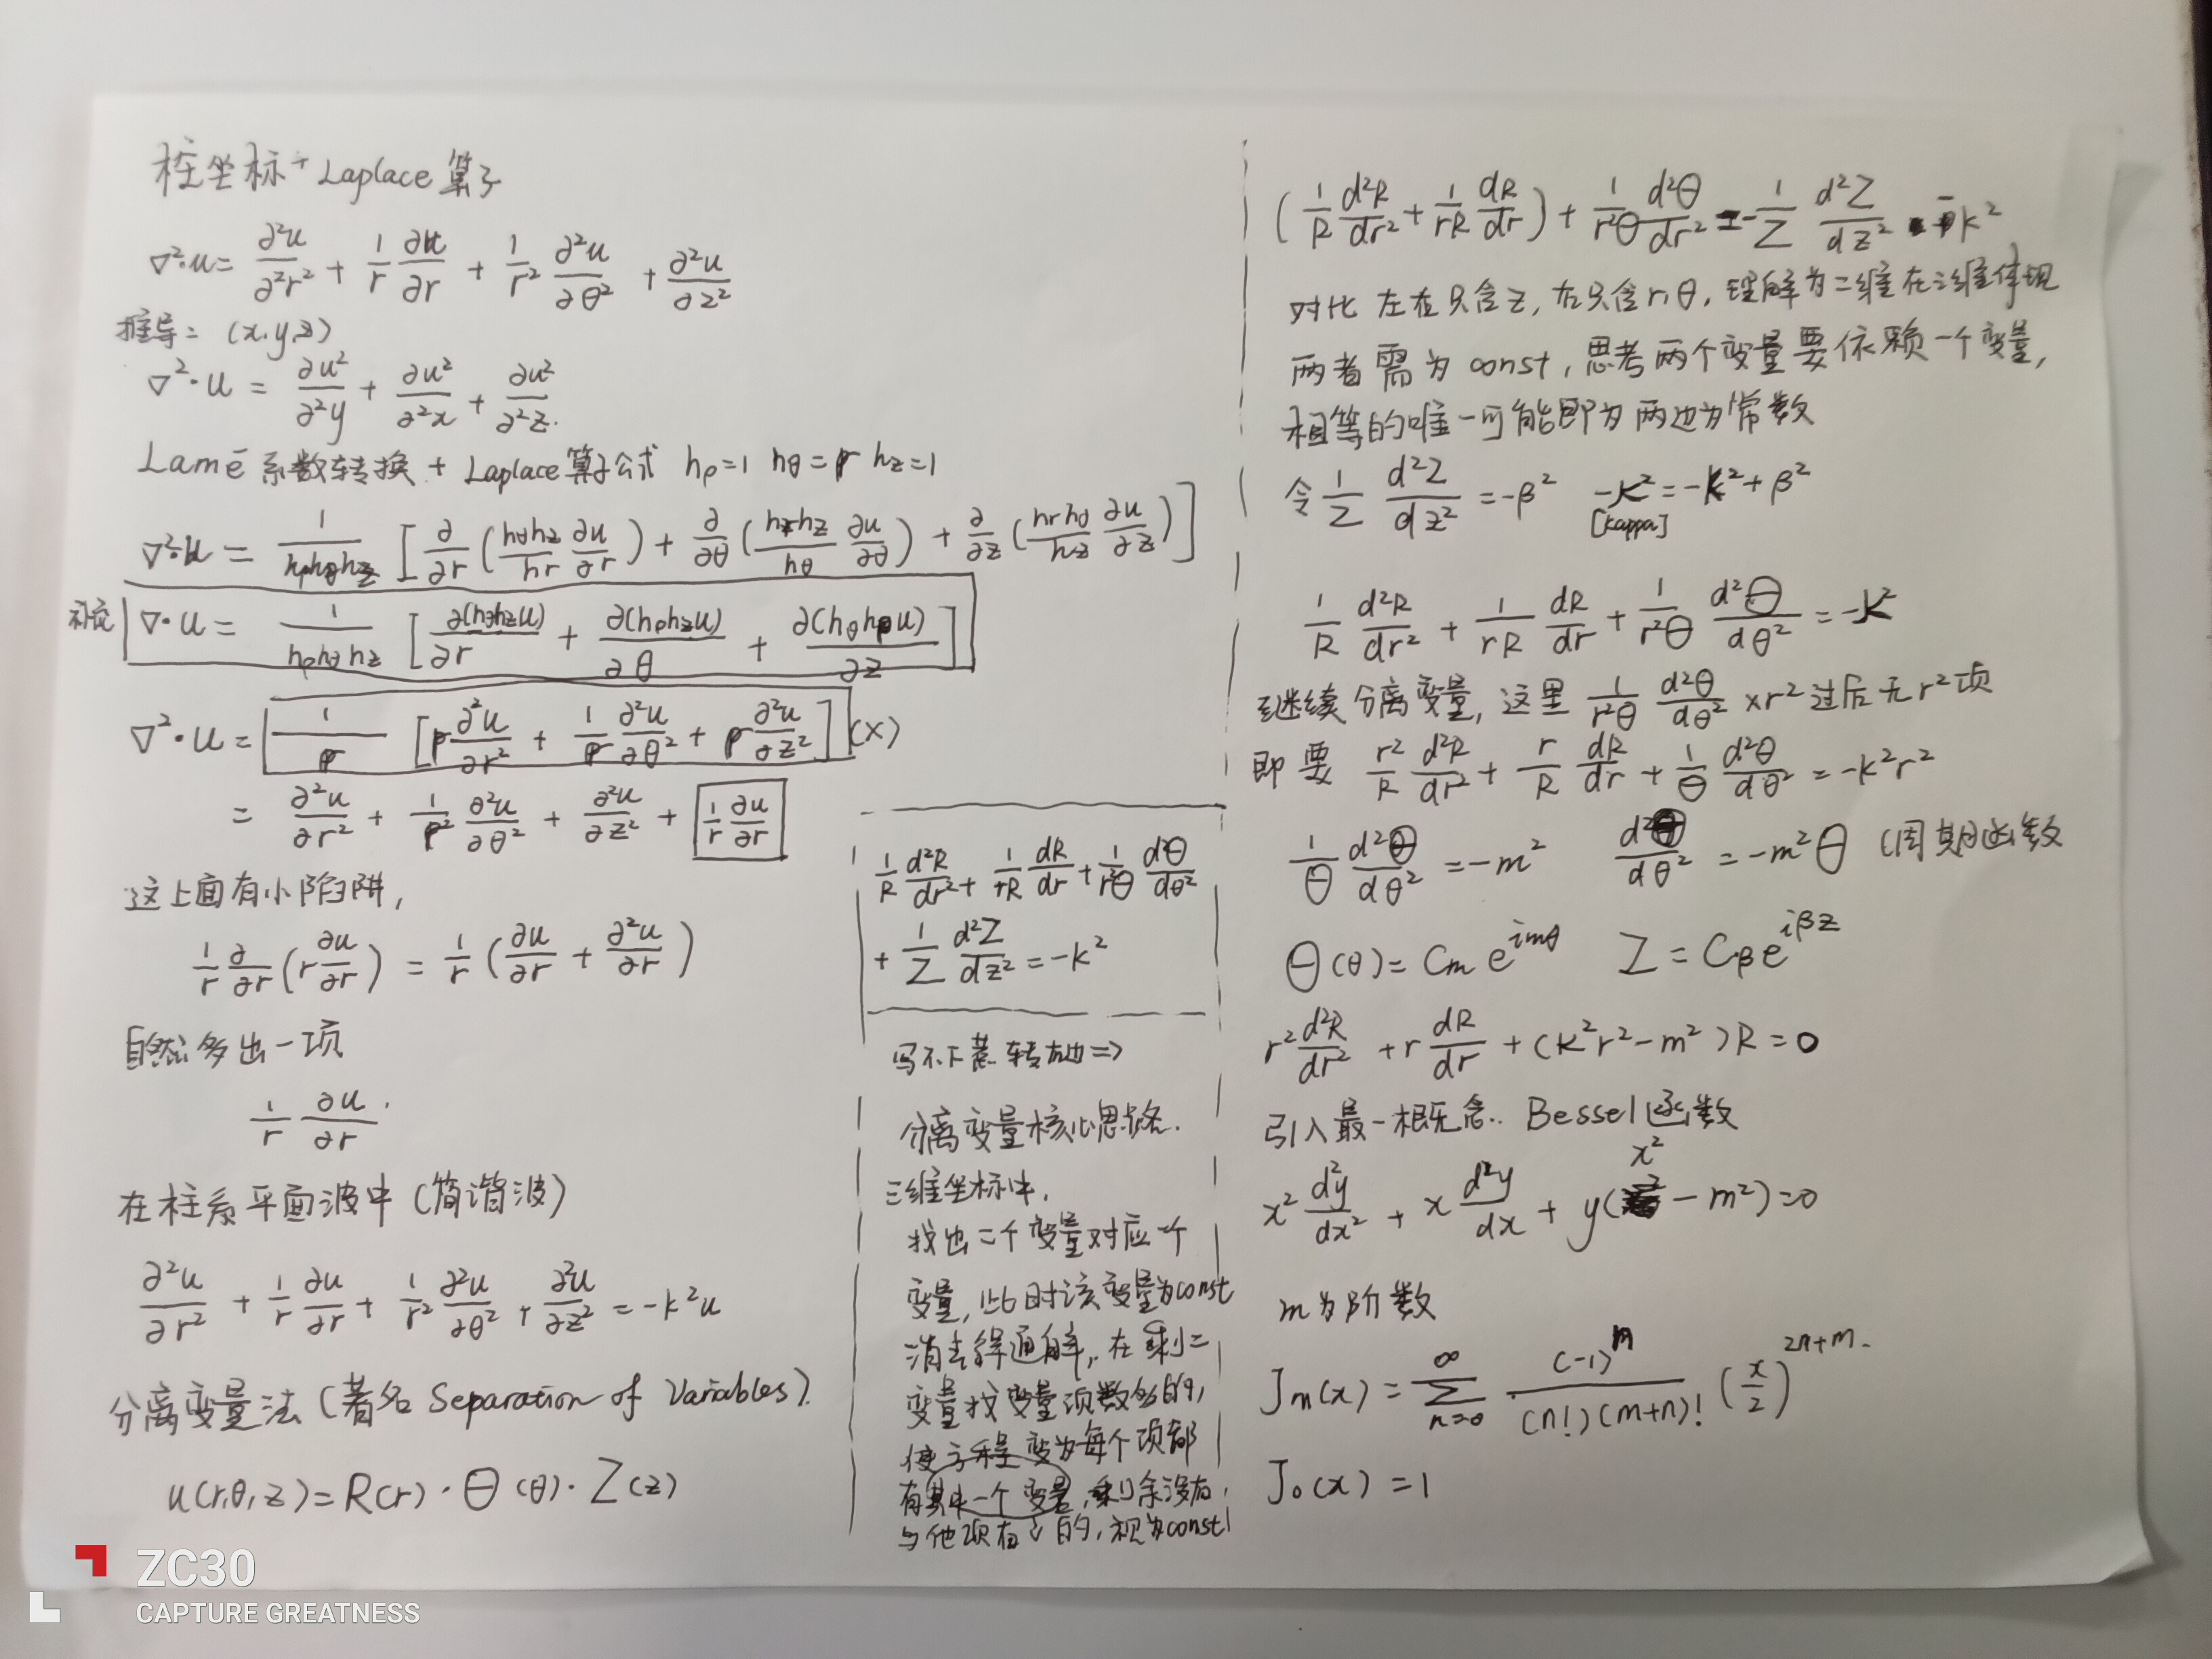 柱坐标+Laplace算子
∇²·u = ∂²u/∂²r² + 1/r ∂u/∂r + 1/r² ∂²u/∂θ² + ∂²u/∂z²
推导: (x.y.z)
∇²·u = ∂u²/∂²y + ∂u²/∂²x + ∂u²/∂²z.
Lamé系数转换 + Laplace算子公式 hρ=1 hθ=r hz=1
∇²·u = 1/(hρhθhz) [∂/∂r (hθhz/hr ∂u/∂r) + ∂/∂θ (hrhz/hθ ∂u/∂θ) + ∂/∂z (hrhθ/hz ∂u/∂z)]
补充 ∇·u = 1/(hρhθhz) [∂(hθhzu)/∂r + ∂(hρhzu)/∂θ + ∂(hθhρu)/∂z]
∇²·u = 1/ρ [ρ ∂²u/∂r² + 1/ρ ∂²u/∂θ² + ρ ∂²u/∂z²] (×)
= ∂²u/∂r² + 1/ρ² ∂²u/∂θ² + ∂²u/∂z² + 1/r ∂u/∂r
这上面有小陷阱,
1/r ∂/∂r (r ∂u/∂r) = 1/r (∂u/∂r + ∂²u/∂r)
自然多出一项
1/r ∂u/∂r.
在柱系平面波中(简谐波)
∂²u/∂r² + 1/r ∂u/∂r + 1/r² ∂²u/∂θ² + ∂²u/∂z² = -k²u
分离变量法(著名Separation of Variables).
u(r,θ,z) = R(r)·Θ(θ)·Z(z)
1/R d²R/dr² + 1/rR dR/dr + 1/r²Θ d²Θ/dθ²
+ 1/Z d²Z/dz² = -k²
写不下惹 转右边⇒
分离变量核心思路.
三维坐标中,
找出二个变量对应一个
变量, 此时该变量为const
消去得通解, 在剩二
变量找变量项数多的,
使方程变为每个项都
有其中一个变量, 剩余没有,
与他项有关的, 视为const
(1/R d²R/dr² + 1/rR dR/dr) + 1/r²Θ d²Θ/dr² = -1/Z d²Z/dz² - k²
对比 左右只含z, 右只含r,θ, 理解为二维在三维体现
两者需为const, 思考两个变量要依赖一个变量,
相等的唯一可能即为两边为常数
令 1/Z d²Z/dz² = -β² -κ² = -k² + β²
[kappa]
1/R d²R/dr² + 1/rR dR/dr + 1/r²Θ d²Θ/dθ² = -κ²
继续分离变量, 这里 1/r²Θ d²Θ/dθ² ×r²过后无r²项
即要 r²/R d²R/dr² + r/R dR/dr + 1/Θ d²Θ/dθ² = -k²r²
1/Θ d²Θ/dθ² = -m² d²Θ/dθ² = -m²Θ (周期函数
Θ(θ) = Cm e^{imθ} Z = Cβ e^{iβz}
r² d²R/dr² + r dR/dr + (k²r² - m²)R = 0
引入最一概念.. Bessel函数
x² d²y/dx² + x d²y/dx + y(x² - m²) = 0
m为阶数
Jm(x) = Σ_{n=0}^{∞} (-1)^n / (n!)(m+n)! (x/2)^{2n+m}.
J₀(x) = 1
ZC30
CAPTURE GREATNESS